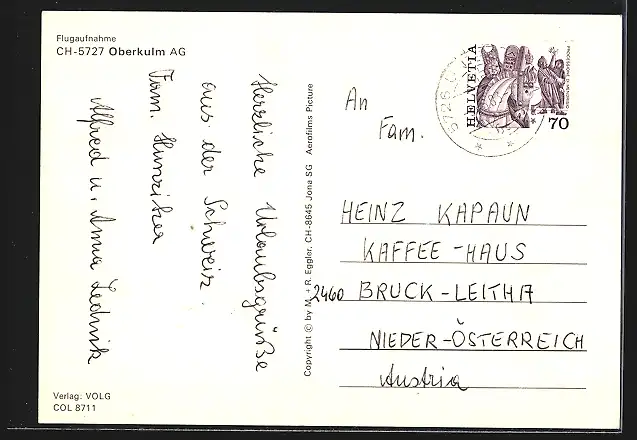 Flugaufnahme
CH-5727 Oberkulm AG
Herzliche Urlaubsgrüße
aus der Schweiz.
Fam. Hunziker
Alfred u. Anna
Verlag: VOLG
COL 8711
Copyright © by M. + R. Eggler, CH-8645 Jona SG Aerofilms Picture
HELVETIA
70
5726
An
Fam.
HEINZ KAPAUN
KAFFEE-HAUS
2460 BRUCK-LEITHA
NIEDER-ÖSTERREICH
Austria